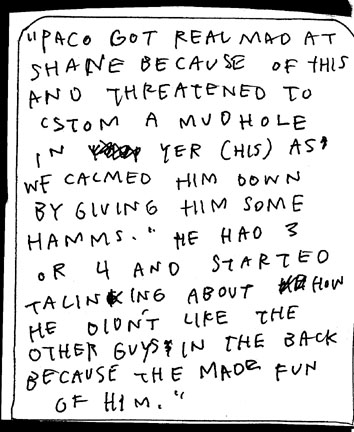 "PACO GOT REAL MAD AT
SHANE BECAUSE OF THIS
AND THREATENED TO
'STOM A MUDHOLE
IN YER (HIS) ASS'
WE CALMED HIM DOWN
BY GIVING HIM SOME
HAMMS." HE HAD 3
OR 4 AND STARTED
TALINKING ABOUT HOW
HE DIDN'T LIKE THE
OTHER GUYS IN THE BACK
BECAUSE THE MADE FUN
OF HIM."